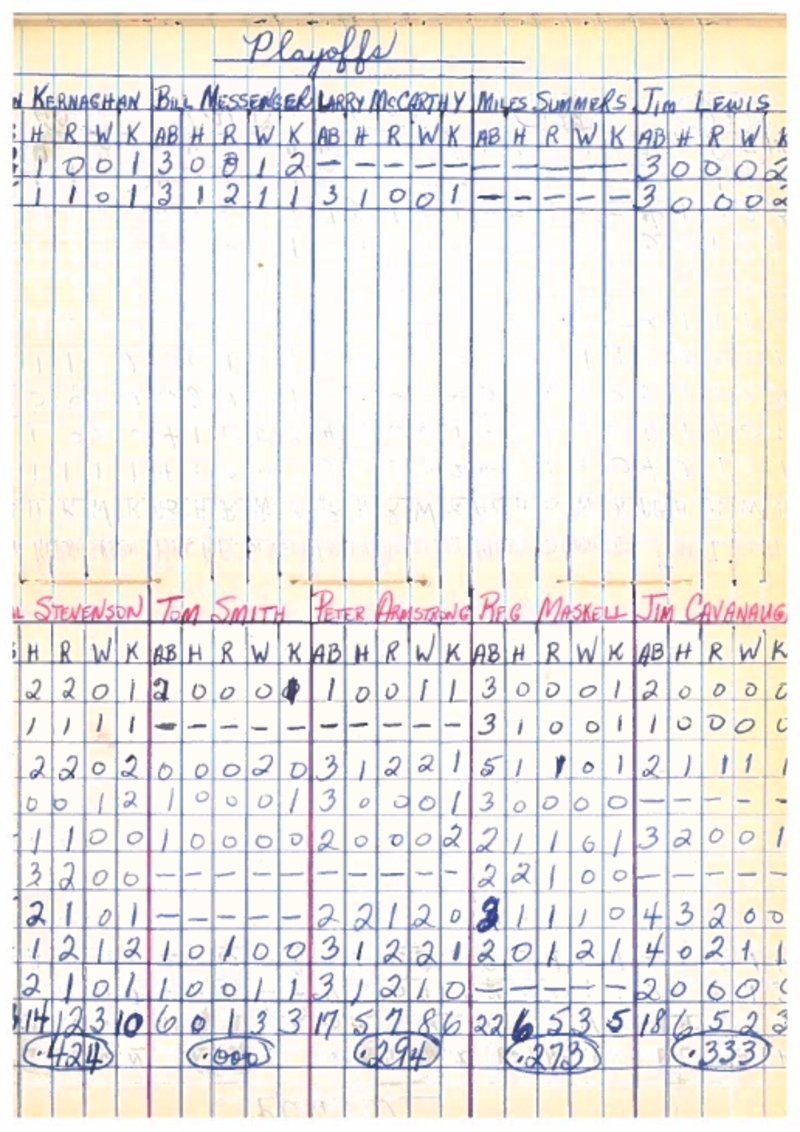 Playoffs
N KERNAGHAN BILL MESSENGER LARRY McCARTHY MILES SUMMERS JIM LEWIS
H R W K AB H R W K AB H R W K AB H R W K AB H R W K
1 0 0 1 3 0 0 1 2 – – – – – – – – – – 3 0 0 0 2
1 1 0 1 3 1 2 1 1 3 1 0 0 1 – – – – – 3 0 0 0 2
STEVENSON TOM SMITH PETER ARMSTRONG REG MASKELL JIM CAVANAUG
H R W K AB H R W K AB H R W K AB H R W K AB H R W K
2 2 0 1 2 0 0 0 1 0 0 1 1 3 0 0 0 1 2 0 0 0 0
1 1 1 1 – – – – – – – – – – 3 1 0 0 1 1 0 0 0 0
2 2 0 2 0 0 0 2 0 3 1 2 2 1 5 1 1 0 1 2 1 1 1 1
0 0 1 2 1 0 0 0 1 3 0 0 0 1 3 0 0 0 0 – – – – –
1 1 0 0 1 0 0 0 0 2 0 0 0 2 2 1 1 0 1 3 2 0 0 1
3 2 0 0 – – – – – – – – – – 2 2 1 0 0 – – – – –
2 1 0 1 – – – – – 2 2 1 2 0 1 1 1 0 4 3 2 0 0
1 2 1 2 1 0 1 0 0 3 1 2 2 1 2 0 1 2 1 4 0 2 1 1
2 1 0 1 1 0 0 1 1 3 1 2 1 0 – – – – – 2 0 0 0
14 12 3 10 6 0 1 3 3 17 5 7 8 6 22 6 5 3 5 18 6 5 2 3
.424 .000 .294 .273 .333